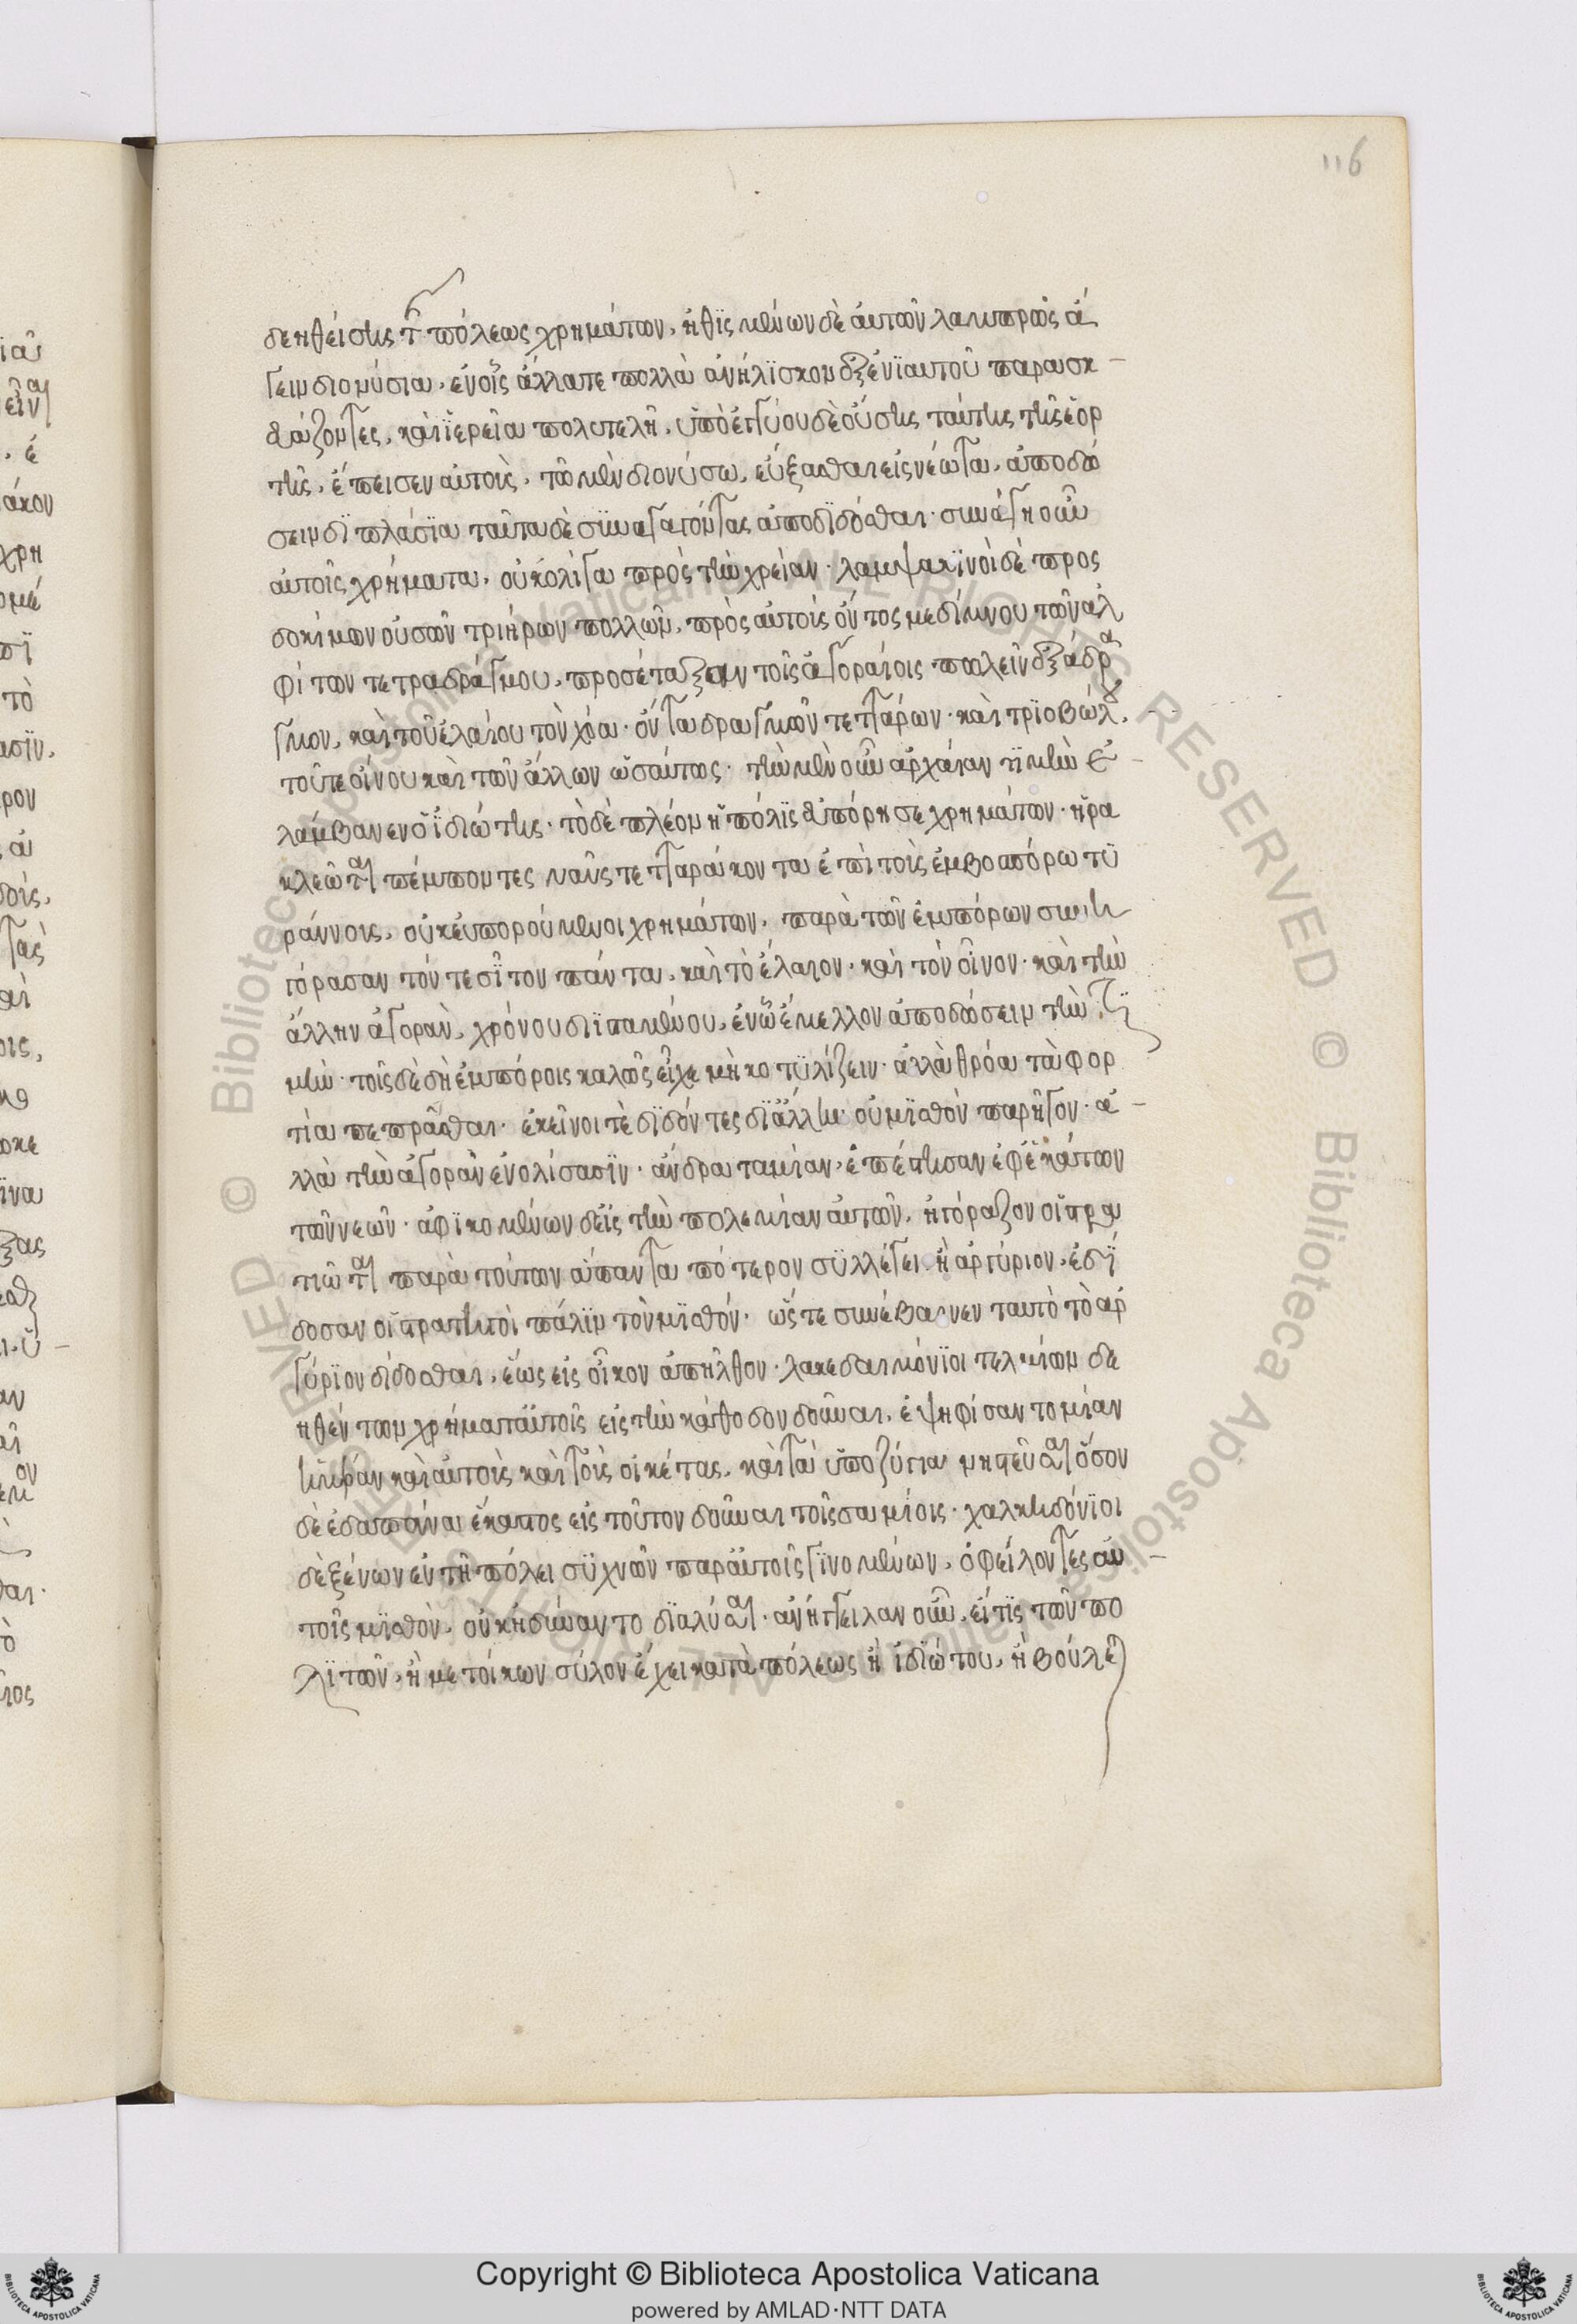 116
δεηθείσης τῆς πόλεως χρημάτων, ἠθϊσμένων δὲ αὐτῶν λαμπρῶς ἄ
γειν διονύσια, ἐν οἷς ἄλλα τε πολλὰ ἀνήλϊσκον δϊ ἐνϊαυτοῦ παρασκ
ευάζοντες, καὶ ἱερεῖα πολυτελῆ, ὑπὸ ἐγγύου δὲ οὔσης ταύτης τῆς ἑορ
τῆς, ἔπεισεν αὐτοὺς, τῶ μὲν διονύσω, εὔξασθαι εἰς νέωτα, ἀποδώ
σειν δϊπλάσϊα ταῦτα δὲ σϋναγαγόντας ἀποδϊδόσθαι· συνάγη οὖν
αὐτοῖς χρήματα, οὐκ ὀλίγα πρὸς τὴν χρείαν· λαμψακϊνοὶ δὲ προς
δοκίμων οὐσῶν τριήρων πολλῶν, πρὸς αὐτοὺς ὄντος μεδίμνου τῶν ἀλ
φίτων τετραδράγμου, προσέταξαν τοῖς ἀγοραίοις πωλεῖν ἑξάδρα
γμον, καὶ τοῦ ἐλαίου τὸν χόα· ὄντα δραγμῶν τεττάρων· καὶ τρϊοβώλου,
τοῦ τε οἴνου καὶ τῶν ἄλλων ὡσαύτως· τὴν μὲν οὖν ἀρχάιαν τϊμὴν ἐ
λάμβανεν ὁ ἰδιώτης· τὸ δὲ πλέον ἡ πόλϊς εὐπόρησε χρημάτων· ἡρα
κλεῶται πέμποντες ναῦς τετταράκοντα ἐπὶ τοὺς ἐμβοσπόρω τϋ
ράννους, οὐκ εὐπορούμενοι χρημάτων, παρὰ τῶν ἐμπόρων συνη
γόρασαν τόν τε σῖτον πάντα, καὶ τὸ ἔλαιον· καὶ τὸν οἶνον· καὶ τὴν
ἄλλην ἀγορὰν, χρόνου διϊσταμένου, ἐν ὧ ἔμελλον ἀποδώσειν τὴν τϊ
μὴν· τοῖς δὲ δὴ ἐμπόροις καλῶς εἶχε μὴ κοτϋλίζειν· ἀλλὰ θρόα τὰ φορ
τία πεπρᾶσθαι· ἐκεῖνοι τὲ δϊδόντες δϊ ἄλλη· οὐ μϊσθὸν παρῆγον· ἀ
λλὰ τὴν ἀγορὰν ἐν ὁλίσασϊν· ἄνδρα ταμίαν, ἐπέστησαν ἐφ ἑκάστων
τῶν νεῶν· ἀφϊκομένων δ εἰς τὴν πολεμίαν αὐτῶν, ἠγόραζον οἱ στρα
τιῶται παρὰ τούτων ἅπαντα πότερον σϋλλέγει ἢ ἀργύριον, ἐδϊ
δοσαν οἱ στρατηγοὶ πάλϊν τὸν μϊσθόν· ὥστε συνέβαινεν ταυτὸ τὸ ἀρ
γύρϊον δίδοσθαι, ἕως εἰς οἶκον ἀπῆλθον· λακεδαιμόνϊοι τελμίων δε
ηθέντων χρήματ αὐτοῖς εἰς τὴν κάθοδον δοῦναι, ἐψηφίσαντο μίαν
ἡμέραν καὶ αὐτοὺς καὶ τοὺς οἰκέτας, καὶ τὰ ὑποζύγια νηστεῦσαι ὅσον
δὲ ἐδαπάνα ἕκαστος εἰς τοῦτον δοῦναι τοῖς σαμίοις· χαλκηδόνϊοι
δὲ ξένων ἐν τῆ πόλει σϋχνῶν παρ αὐτοῖς γϊνομένων, ὀφείλοντες αὐ
τοῖς μϊσθὸν, οὐκ ἠδύναντο δϊαλύσαι· ἀνήγγειλαν οὖν, εἴ τϊς τῶν πο
λϊτῶν, ἢ μετοίκων σύλον ἔχει κατὰ πόλεως ἢ ἰδϊώτου, ἢ βούλε
Copyright © Biblioteca Apostolica Vaticana
powered by AMLAD·NTT DATA